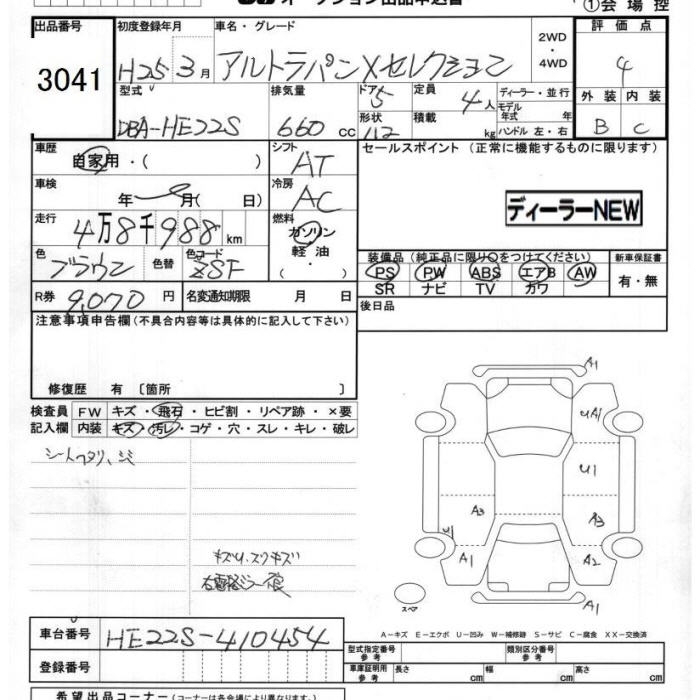 オークション出品申込書
①会場控
出品番号 初度登録年月 車名・グレード 2WD・4WD 評価点
3041 H25 3月 アルトラパン Xセレクション 4
型式 排気量 ドア 定員 ディーラー・並行 外装 内装
DBA-HE22S 660 cc 5 4人 モデル年式 年式 B C
形状 積載 kg ハンドル 左・右
112
車歴 自家用・( ) シフト AT セールスポイント (正常に機能するものに限ります)
車検 年 月( 日) 冷房 AC
ディーラーNEW
走行 4万8千988km 燃料 ガソリン 軽油 ・( )
色 ブラウン 色替 色コード ZSF
装備品 (純正品に限り○をつけてください) 新車保証書
PS PW ABS エアB AW 有・無
SR ナビ TV カワ
R券 9,070円 名変通知期限 月 日
後日品
注意事項申告欄 (不具合内容等は具体的に記入して下さい)
修復歴 有 [箇所 ]
検査員 FW キズ・飛石・ヒビ割・リペア跡・×要
記入欄 内装 キズ・汚レ・コゲ・穴・スレ・キレ・破レ
シートヘタリ、シミ
キズU、スリキズ
A1
UA1
U1
A3 A3
U1
A1 A2
スペア A1
A-キズ E-エクボ U-凹み W-補修跡 S-サビ C-腐食 XX-交換済
車台番号 HE22S-410454
登録番号
型式指定番号 参考 類別区分番号 参考
車庫証明用 参考 長さ cm 幅 cm 高さ cm
希望出品コーナー (コーナー名は各会場により異なります)